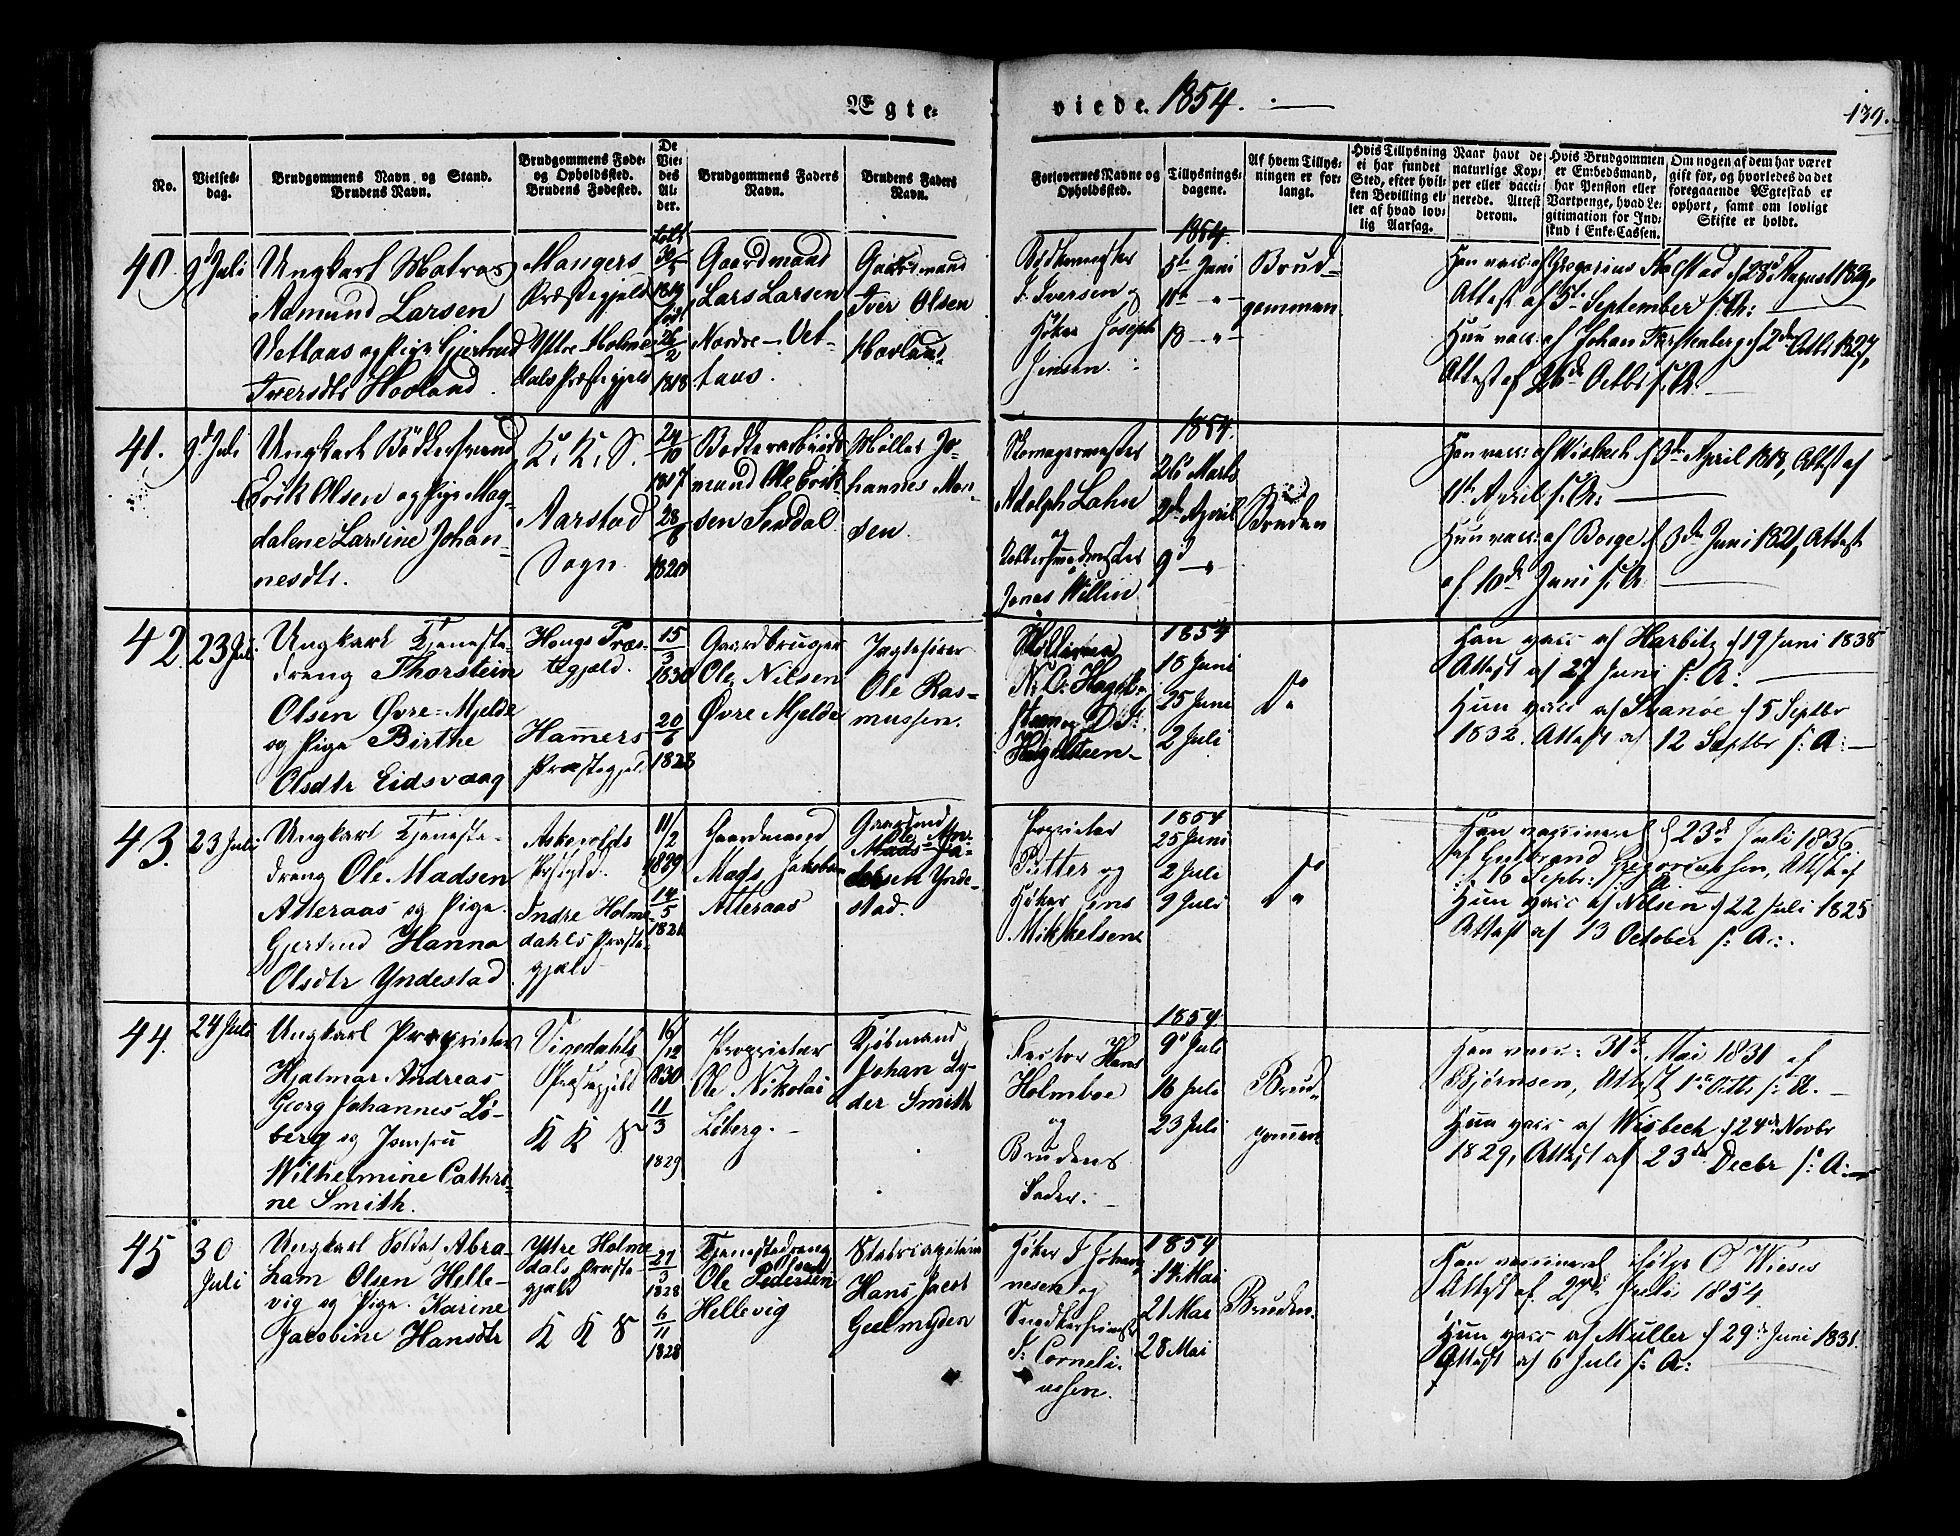 Ægte- viede 1854.
139.
No.
Vielses-
dag.
Brudgommens Navn og Stand.
Brudens Navn.
Brudgommens Føde-
og Opholdssted.
Brudens Fødested.
De
Vie-
des
Al-
der.
Brudgommens Faders
Navn.
Brudens Faders
Navn.
Forlovernes Navne og
Opholdssted.
Tillysnings-
dagene.
Af hvem Tillys-
ningen er for-
langt.
Hvis Tillysning
ei har fundet
Sted, efter hvil-
ken Bevilling el-
ler af hvad lov-
lig Aarsag.
Naar havt de
naturlige Kop-
per eller vacci-
nerede. Attest
derom.
Hvis Brudgommen
er Embedsmand,
har Pension eller
Vartpenge, hvad Le-
gitimation for Ind-
skud i Enke-Cassen.
Om nogen af dem har været
gift før, og hvorledes da det
foregaaende Ægteskab er
ophørt, samt om lovligt
Skifte er holdt.
40.
9d Juli
Ungkarl Matros
Aamund Larsen
Vetlaas og Pige Gjertrud
Iversdtr Hovland.
Mangers
Præstegjeld
Yttre Holme-
dals Præstegjeld
født
30/5
1819
født
26/2
1818
Gaardmand
Lars Larsen
Nordre Vet-
laas.
Gaardmand
Iver Olsen
Hovland.
Bødkermester
I. Iversen og
Høker Joseph
Jensen.
1854.
5te Juni
11te "
18 "
Brud-
gommen
Han vacc: af Gregorius Kalstad 28d August 1829,
Attest af 5te September s: A:
Hun vacc: af Johan Forstenberg d 2den Octb: 1827,
Attest af 26de Octbr s: A:
41.
9d Juli
Ungkarl Bödkersvend
Erik Olsen og Pige Mag-
dalene Larsine Johan-
nesdtr.
K. K. S.
Aarstad
Sogn
24/10
1817
28/6
1820
Bødkerarbeids-
mand Ole Erik-
sen Sandal.
Møller Jo-
hannes Mon-
sen.
Skomagermester
Adolph Lahn
og
Jonas Willin
1854.
26 Marts
2den April
9d "
Bruden
Han vacc: af Wisbech d 3de April 1818, Attest af
11te April s: A:
Hun vacc: af Borge d 3de Juni 1821, Attest
af 10de Juni s: A:
42.
23 Juli
Ungkarl Tjeneste-
dreng Thorstein
Olsen Øvre-Mjelde
og Pige Birthe
Olsdtr Eidsvaag
Hougs Præs-
tegjæld.
Hamers
Præstegjeld
15/3
1830
20/6
1828
Gaardbruger
Ole Nilsen
Øvre Mjelde
Jagtefører
Ole Ras-
mussen.
N. C. Hagel-
steen og D. J.
Hagelsteen
1854
18 Juni
25 Juni
2 Juli
Do
Han vacc af Harbitz d 19 Juni 1838
Attest af 27 Juni s: A:
Hun vacc af Svanøe d 5 Septbr
1832. Attest af 12 Septbr s: A:
43.
23 Juli
Ungkarl Tjeneste-
dreng Ole Madsen
Atteraas og Pige
Gjertrud Hanna
Olsdtr Yndestad
Askevolds
Præstegjld.
Indre Holme-
dahls Præste-
gjæld
11/2
1829
14/5
1821
Gaardmand
Mads Jakobsen
Atteraas
Gaardmd
Ole An-
dersen Ynde-
stad.
Proprietær
Pütter og
Høker Jens
Mikkelsene
1854
25 Juni
2 Juli
9 Juli
Do
Han vaccineret d 23d Juli 1836
af Guldbrand Gregoriussen, Attest af
16 Septbr: s. A.
Hun vacc af Nilsen d 22 Juli 1825
Attest af 13 October s: A:.
44.
24 Juli
Ungkarl Proprietær
Hjalmar Andreas
Georg Johannes Lö-
berg og Jomfru
Wilhelmine Cathri-
ne Smith.
Vinedahls
Præstegjeld
K K S
16/12
1830
11/3
1829
Proprietær
Ole Nikolai
Löberg.
Kjøbmand
Johan Ly-
der Smith
Rector Hans
Holmboe
og
Brudens
Fader.
1854
9d Juli
16 Juli
23 Juli
Brud-
gommen
Han vacc: 31te Mai 1831 af
Bjørnsen, Attest 1ste Octb: s: A.
Hun vacc af Wisbeck d 24de Novbr
1829, Attest af 23de Decbr s: A:
45
30
Juli
Ungkarl Soldat Abra-
ham Olsen Helle-
vig og Pige Karine
Jacobine Hansdtr
Yttre Holme-
dals Præste-
gjæld
K K S
27/3
1828
6/11
1828
Tjenestedreng
Ole Pedersen
Hellevig
Stabscapitain
Hans Jacob
Geelmyden
Høker J Johan-
nesen og
Snedkersvend
I: Corneli-
ussen.
1854
14 Mai
21 Mai
28 Mai
Bruden
Han vaccineret ifølge O Wieses
Attest af 27de Juli 1854.
Hun vacc af Müller d 29de Juni 1831
Attest af 6 Juli s: A: